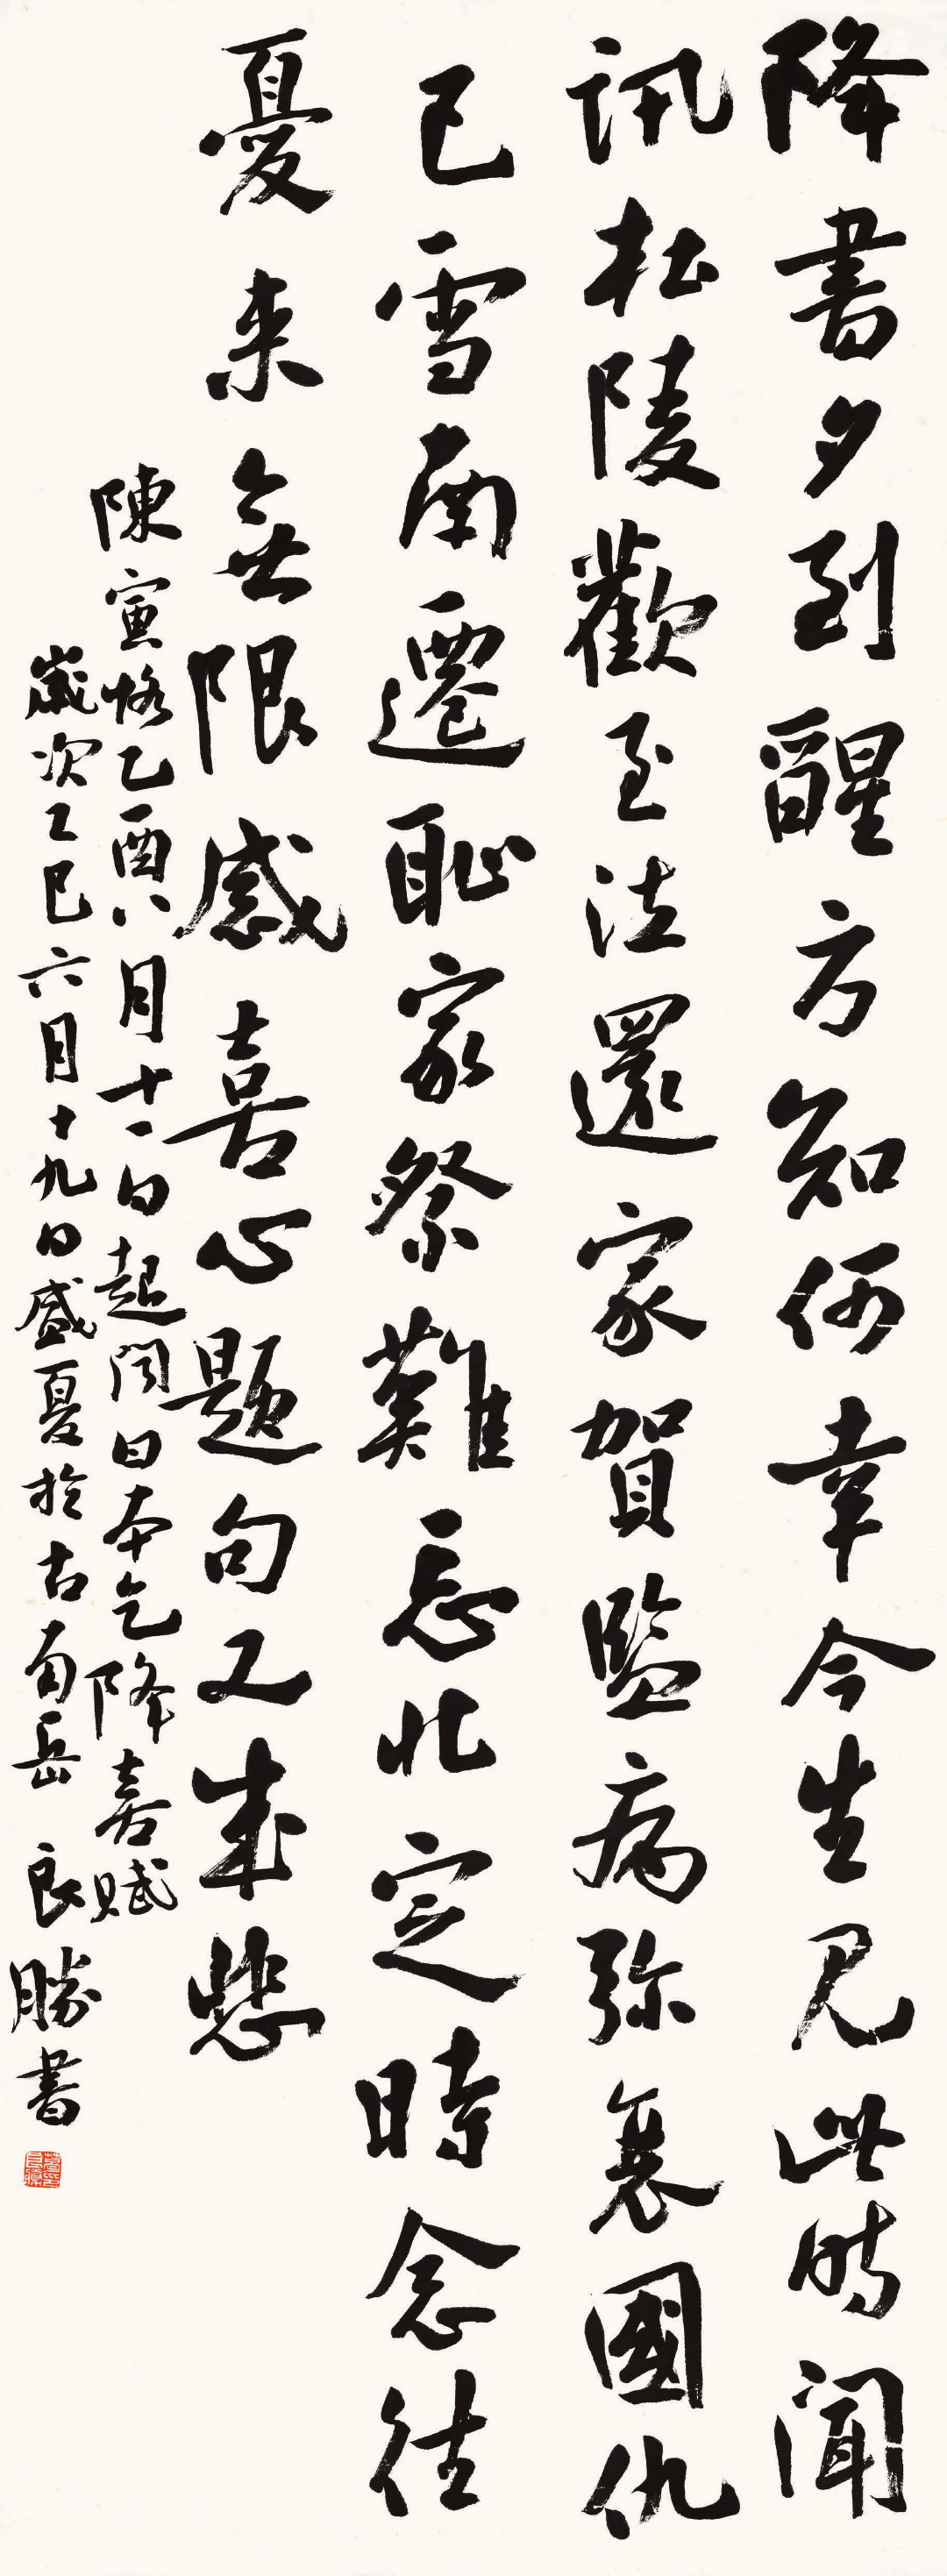 降書夕到醒方知何幸今生見此時聞
訊杜陵歡至泣還家賀監病弥衰國仇
已雪南遷耻家祭難忘北定時念往
憂來無限感喜心題句又成悲
陳寅恪乙酉八月十一日起聞日本乞降喜賦
歲次乙巳六月十九日盛夏於古南岳 良勝書